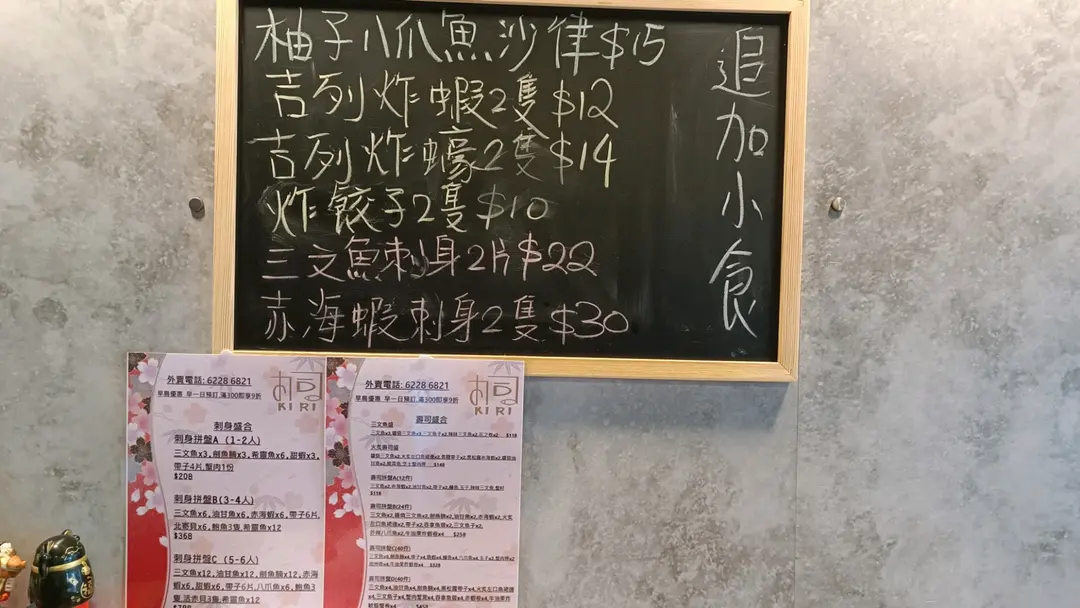 柚子八爪魚沙律$15
吉列炸蝦2隻$12
吉列炸蠔2隻$14
炸餃子2隻$10
三文魚刺身2片$22
赤海蝦刺身2隻$30
追加小食
外賣電話: 6228 6821
早鳥優惠 早一日預訂,滿300即享9折
桐
KIRI
刺身盛合
刺身拼盤A (1-2人)
三文魚x3,劍魚腩x3,希靈魚x6,甜蝦x3,
帶子4片,蟹肉1份
$208
刺身拼盤B(3-4人)
三文魚x6,油甘魚x6,赤海蝦x6,帶子6片,
北寄貝x6,鮑魚3隻,希靈魚x12
$368
刺身拼盤C (5-6人)
三文魚x12,油甘魚x12,劍魚腩x12,赤海
蝦x6,甜蝦x6,帶子6片,八爪魚x6,鮑魚3
隻,活赤貝3隻,希靈魚x12
外賣電話: 6228 6821
早鳥優惠 早一日預訂,滿300即享9折
桐
KIRI
壽司盛合
三文魚盛
$118
火炙壽司盛
$148
壽司拼盤A(12件)
$138
壽司拼盤B(24件)
$258
壽司拼盤C(40件)
$328
壽司拼盤D(40件)